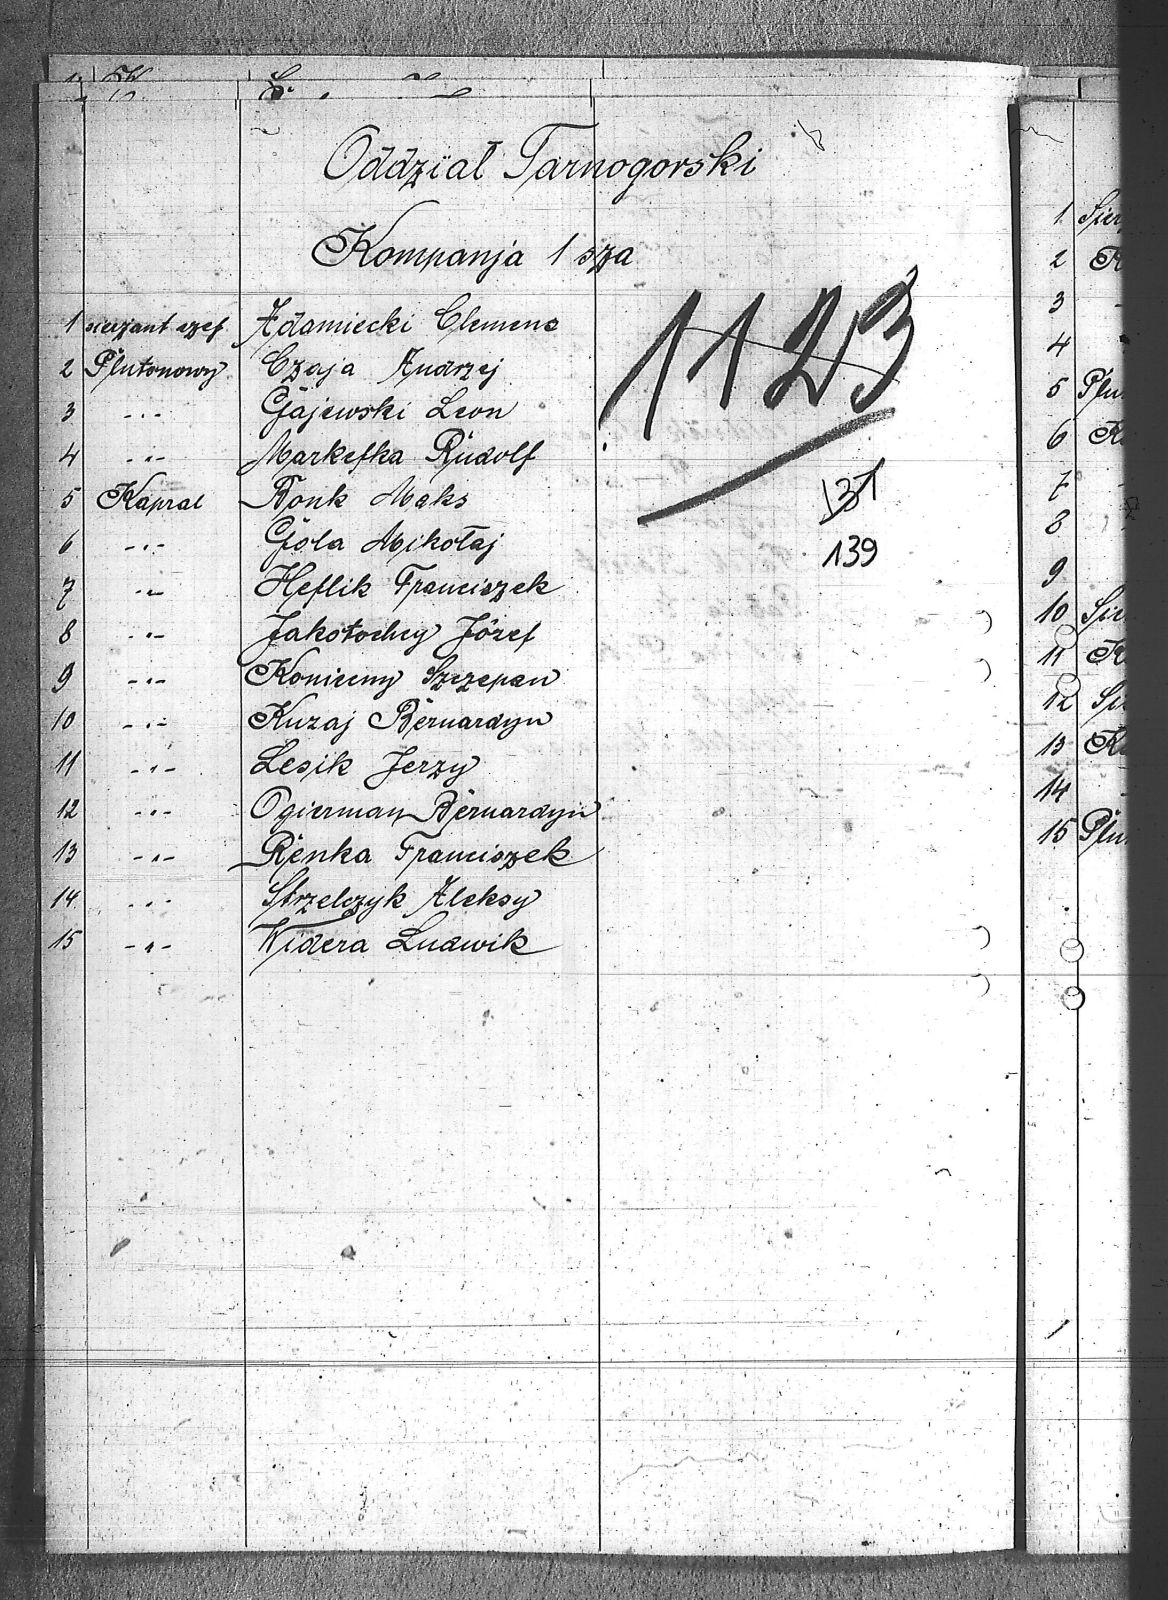 Oddział Tarnogorski
Kompanja 1 sza
1123
1 sierżant szef Adamiecki Clemens
2 Plutonowy Czaja Andrzej
3 -"- Gajewski Leon
4 -"- Markefka Rudolf
131
5 Kapral Bonk Maks
6 -"- Gola Mikołaj
139
7 -"- Heflik Franciszek
8 -"- Józef
9 -"- Konieczny Szczepan
10 -"- Kuzaj Bernardyn
11 -"- Lesik Jerzy
12 -"- Ogierman Bernardyn
13 -"- Renka Franciszek
14 -"- Strzelczyk Aleksy
15 -"- Widera Ludwik
1
2
3
4
5
6
7
8
9
10
11
12
13
14
15